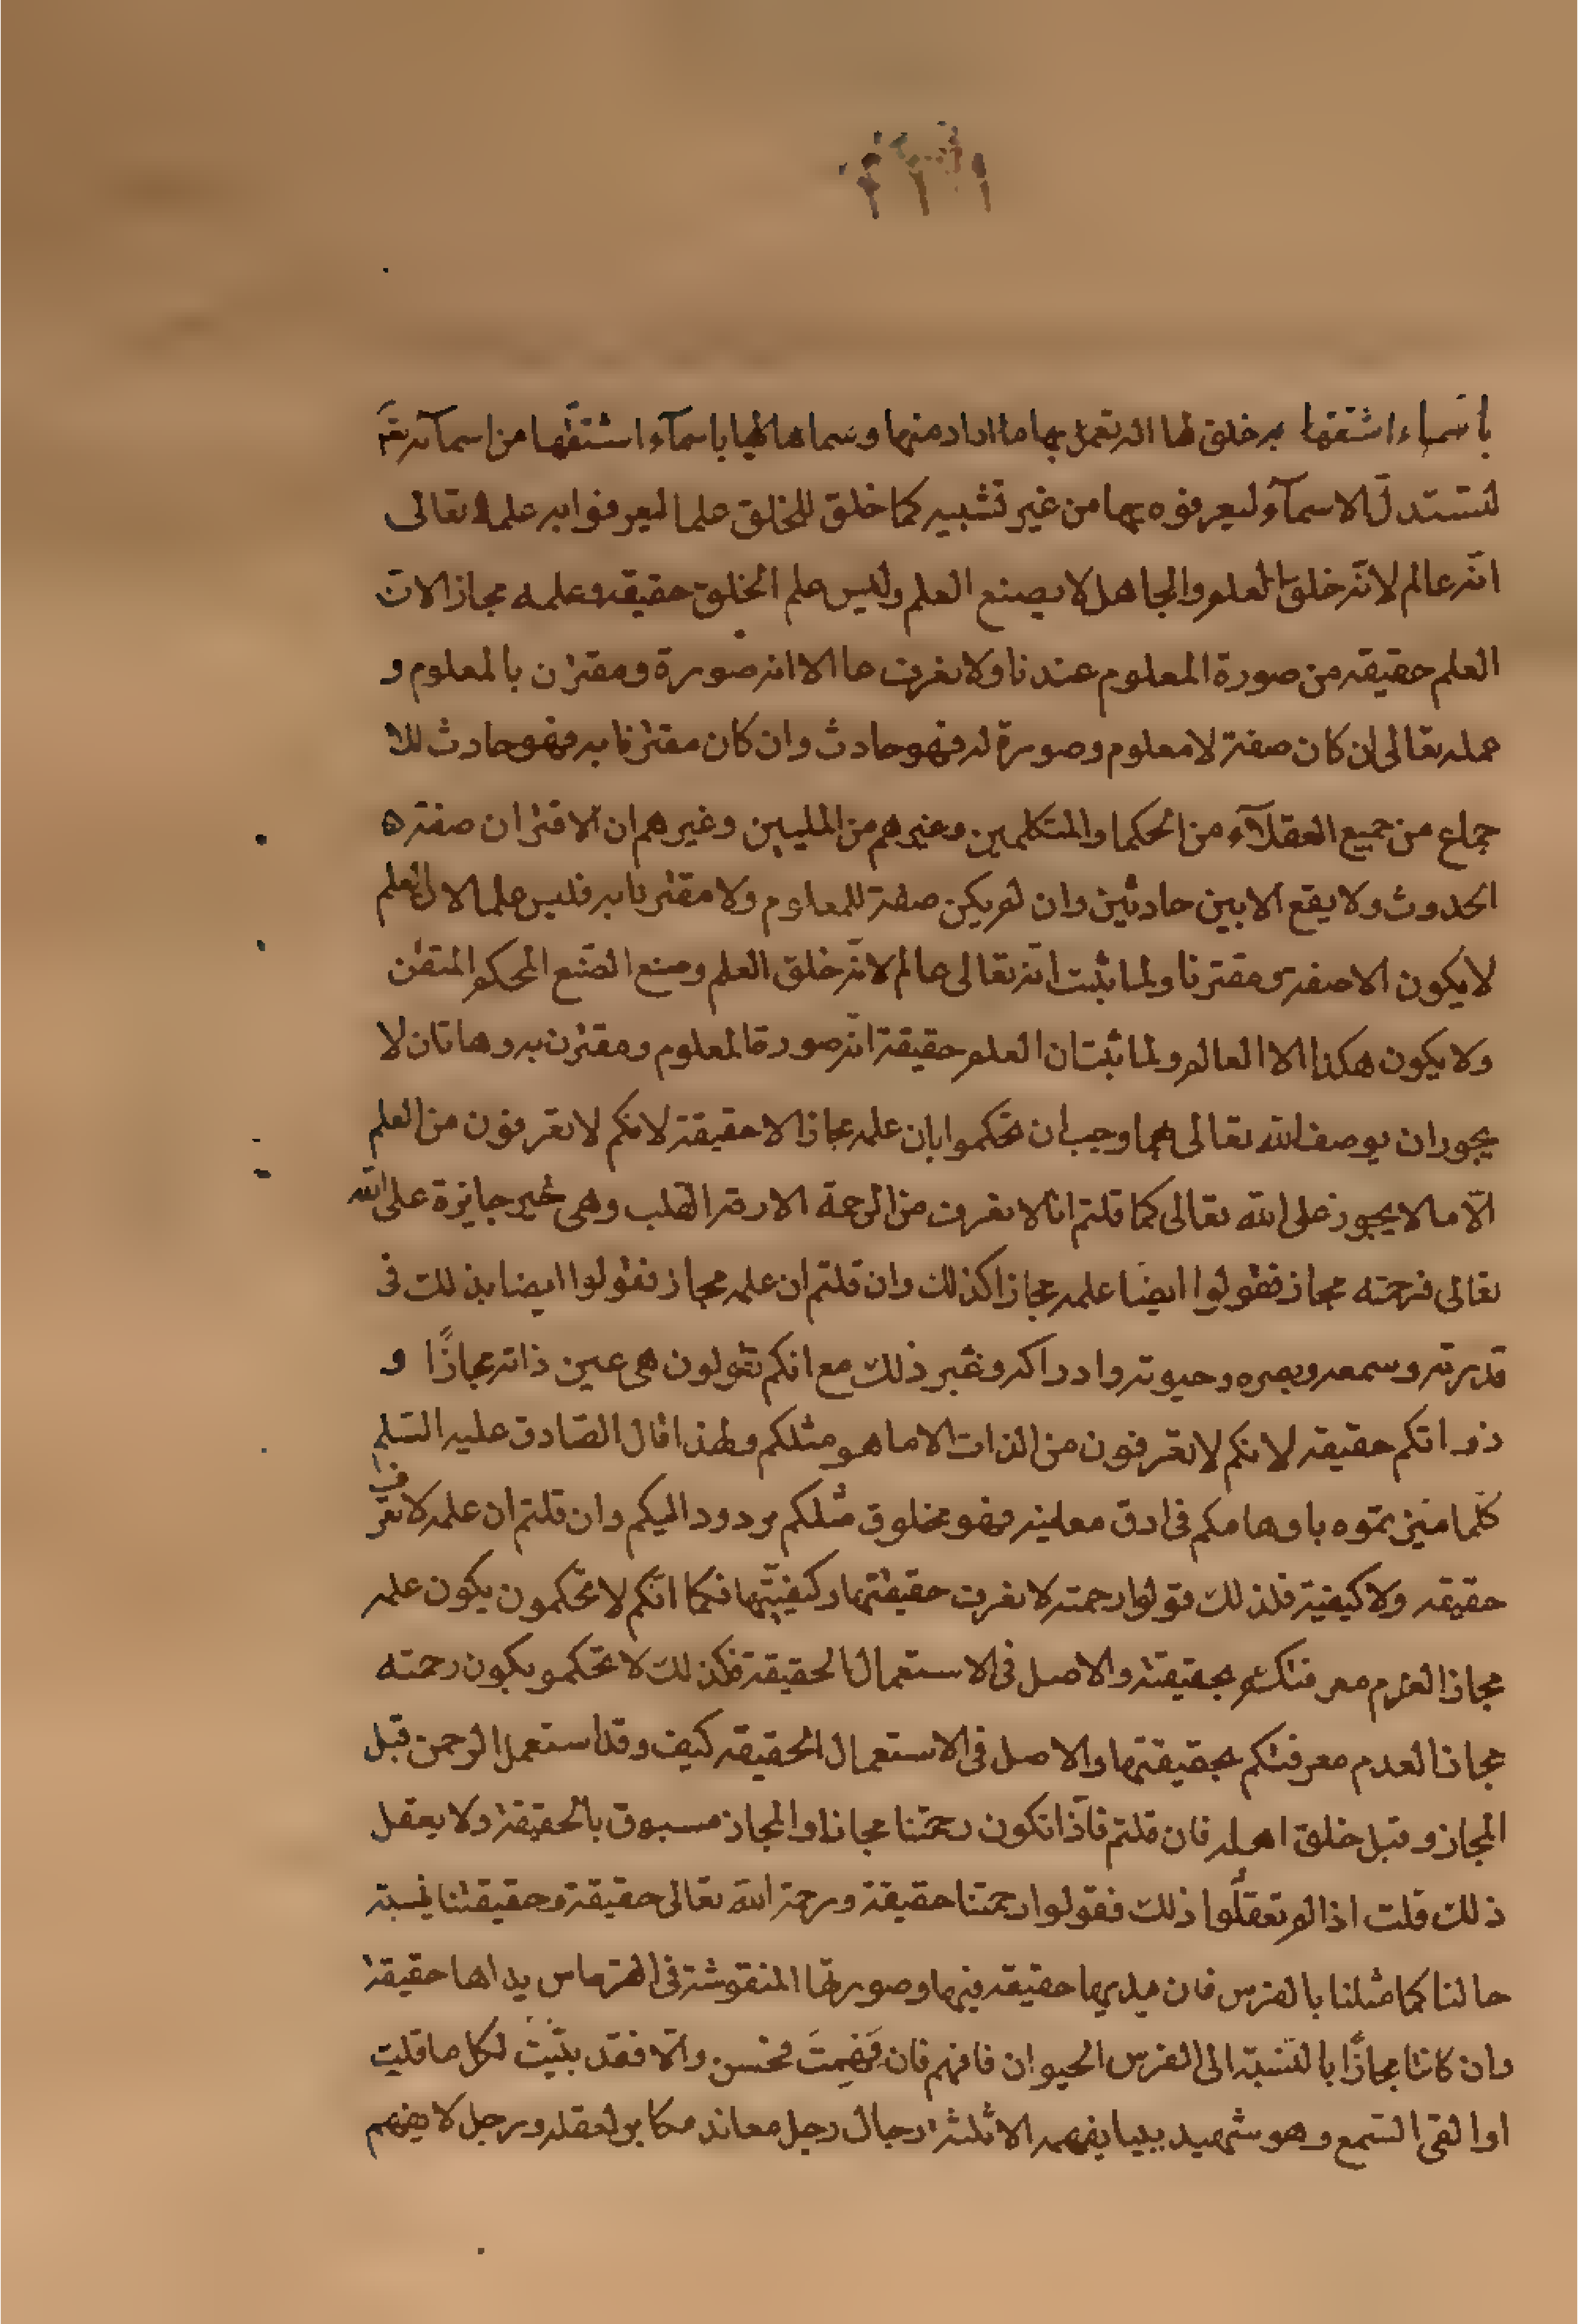 باسماء اشتقها به خلق لها اله تعمل بها ما اراد منها وسماها لها باسمآء اشتقّها من اسمآئه تعم
لتستدلّ الاسمآء ليعرفوه بها من غير تشبيه كما خلق للخلق علما ليعرفوا به علمه تعالى
انّه عالم لانّه خلق العلم والجاهل لا يصنع العلم وليس علم الخلق حقيقه وعلمه مجاز الان
العلم حقيقه من صورة المعلوم عندنا ولا نعرف ها الا انه صورة ومقترن بالمعلوم و
عمله تعالى ان كان صفة لا معلوم وصورة له فهو حادث وان كان مقترنا به فهو حادث للا
جماع من جميع العقلآء من الحكما والمتكلمين وغيرهم من المليين وغيرهم ان الاقتران صفته
الحدوث ولا يقع الا بين حادثين وان لم يكن صفة للمعلوم ولا مقترنا به فليس علما لان العلم
لا يكون الا صفة مقترنا ولما ثبت انّه تعالى عالم لانّه خلق العلم وصنع الصّنع المحكم المتقن
ولا يكون هكذا الا العالم ولما ثبت ان العلم حقيقة انّه صورة المعلوم ومقترن به وهاتان لا
يجوران يوصف الله تعالى بهما وجب ان تحكموا بان علمه مجاز الا حقيقة لانكم لا تعرفون من العلم
الّا ما لا يجوز على الله تعالى كما قلتم انا لا نعرف من الرحمة الا رقة القلب وهى غير جايزة على الله
تعالى فرحمته مجاز فقولوا ايضًا علمه مجازا كذلك وان قلتم ان علمه مجاز فقولوا ايضا بذلك فى
قدرته وسمعه وبصره وحيوته وادراكه وغير ذلك مع انكم تقولون هى عين ذاته مجازًا و
ذواتكم حقيقه لانكم لا تعرفون من الذات الا ما هو مثلكم ولهذا قال الصّادق عليه السّلم
كلّما ميّزتموه باوهامكم فى ادق معانيه فهو مخلوق مثلكم مردود اليكم وان قلتم ان علمه لا نعرف
حقيقه ولا كيفية فلذلك قولوا رحمته لا نعرف حقيقتها وكيفيّتها فكما انّكم لا تحكمون بكون علمه
مجازا لعدم معرفتكم بحقيقته والاصل فى الاستعمال الحقيقة فكذلك لا تحكمو بكون رحمته
مجازا لعدم معرفتكم بحقيقتها والاصل فى الاستعمال الحقيقه كيف وقد استعمل الرحمن قبل
المجاز وقبل خلق اهله فان قلتم فاذا تكون رحمتنا مجازا والمجاز مسبوق بالحقيقة ولا يعقل
ذلك قلت اذا لم تعقلوا ذلك فقولوا رحمتنا حقيقة ورحمة الله تعالى حقيقة وحقيقتنا نسبته
حالنا كما مثلنا بالفرس فان يديها حقيقه فيها وصورتها المنقوشة فى القرطاس يداها حقيقة
وان كانتا مجازًا بالنّسبّة الى الفرس الحيوان فافهم فان فَهِمتَ فحسن والّا فقد بيّنتُ لكل ما قلت
او القى السّمع وهو شهيد بيبا يفهمه الا ثلثة رجال رجل معاند مكابر لعقله ورجل لا يفهم